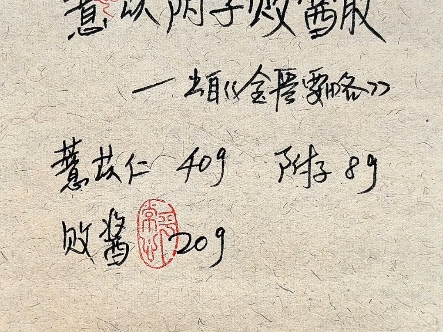 薏苡附子败酱散
—出自《金匮要略》
薏苡仁 40g 附子 8g
败酱 20g